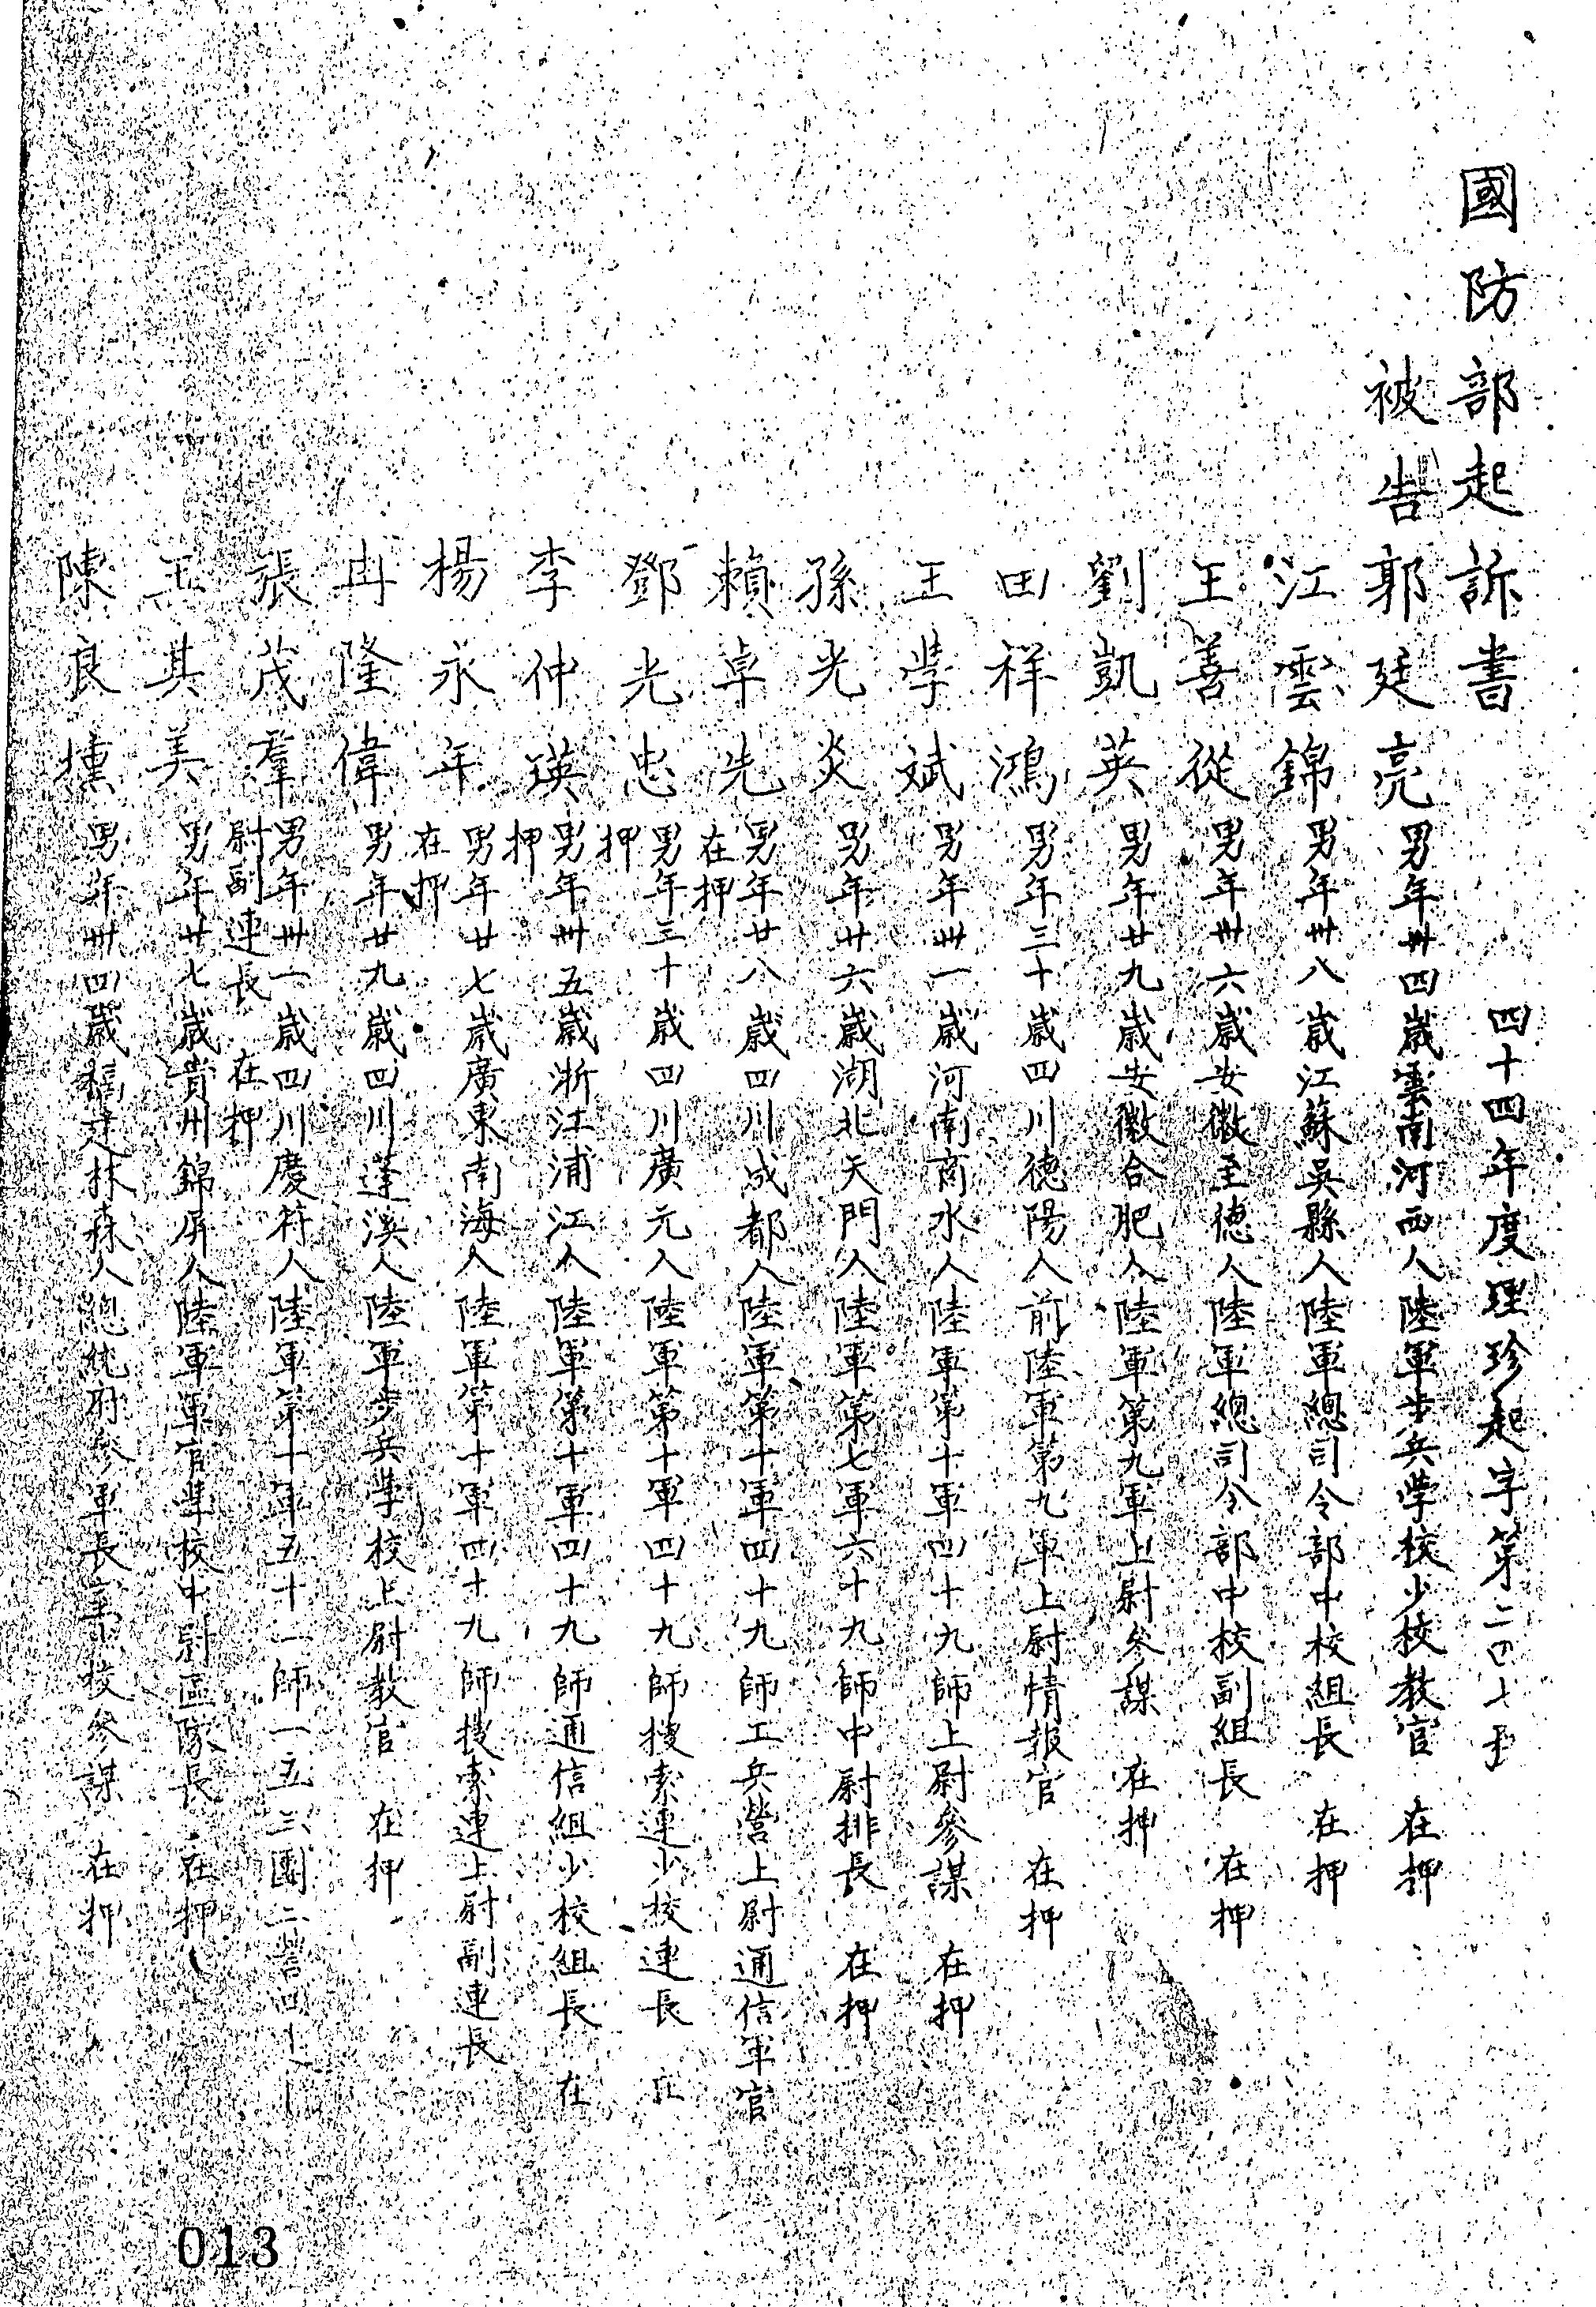 國防部起訴書 四十四年度理珍起字第二四七號
被告郭廷亮 男年卅四歲雲南河西人陸軍步兵學校少校教官 在押
江雲錦 男年卅八歲江蘇吳縣人陸軍總司令部中校組長 在押
王善從 男年卅六歲安徽至德人陸軍總司令部中校副組長 在押
劉凱英 男年廿九歲安徽合肥人陸軍第九軍上尉參謀 在押
田祥鴻 男年三十歲四川德陽人前陸軍第九軍上尉情報官 在押
王學斌 男年卅一歲河南商水人陸軍第十軍四十九師上尉參謀 在押
孫光炎 男年廿六歲湖北天門人陸軍第七軍六十九師中尉排長 在押
賴卓先 男年廿八歲四川成都人陸軍第十軍四十九師工兵營上尉通信軍官
在押
鄧光忠 男年三十歲四川廣元人陸軍第十軍四十九師搜索連少校連長 在
押
李仲瑛 男年卅五歲浙江浦江人陸軍第十軍四十九師通信組少校組長 在
押
楊永年 男年廿七歲廣東南海人陸軍第十軍四十九師搜索連上尉副連長
在押
冉隆偉 男年廿九歲四川蓬溪人陸軍步兵學校上尉教官 在押
張茂羣 男年卅一歲四川慶符人陸軍第十軍五十一師一五三團二營
尉副連長 在押
王其美 男年廿七歲貴州錦屏人陸軍軍官學校中尉區隊長 在押
陳良壎 男年卅四歲福建林森人總統府參軍長室少校參謀 在押
013